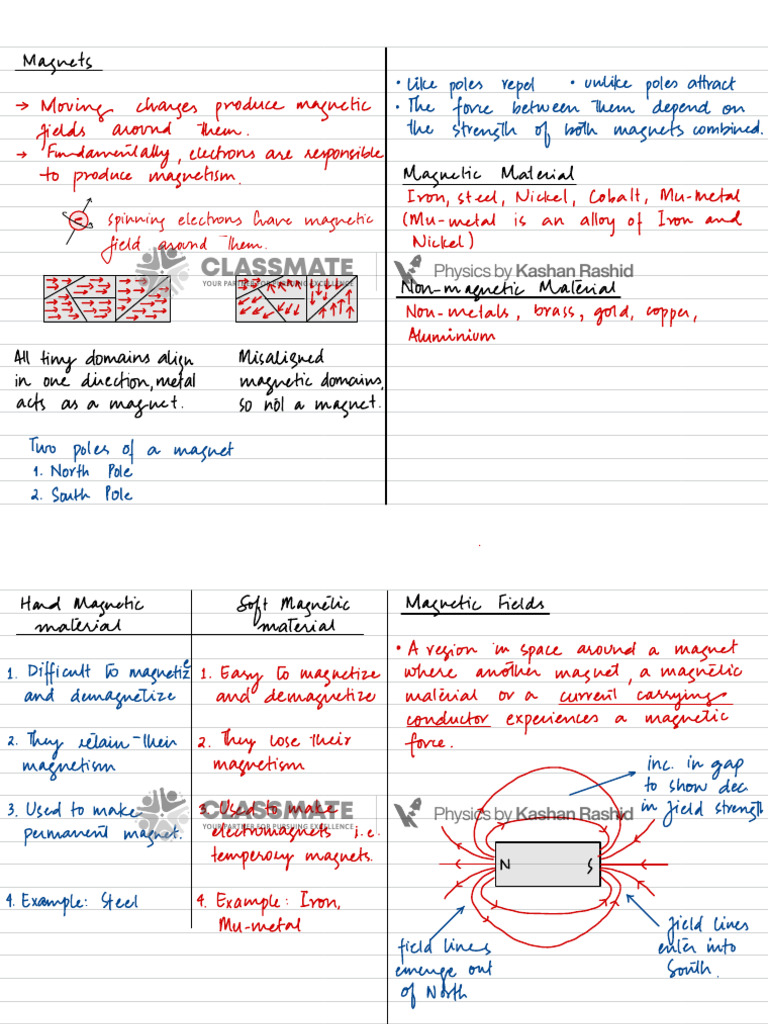 Magnets
→ Moving charges produce magnetic
fields around them.
→ Fundamentally, electrons are responsible
to produce magnetism.
spinning electrons have magnetic
field around them.
CLASSMATE
YOUR PARTNER FOR PURSUING EXCELLENCE
All tiny domains align
in one direction, metal
acts as a magnet.
Misaligned
magnetic domains,
so not a magnet.
Two poles of a magnet
1. North Pole
2. South Pole
• Like poles repel • unlike poles attract
• The force between them depend on
the strength of both magnets combined.
Magnetic Material
Iron, steel, Nickel, Cobalt, Mu-metal
(Mu-metal is an alloy of Iron and
Nickel)
Physics by Kashan Rashid
Non-magnetic Material
Non-metals, brass, gold, copper,
Aluminium
Hard Magnetic
material
1. Difficult to magnetize
and demagnetize
2. They retain their
magnetism
3. Used to make
permanent magnet.
4. Example: Steel
Soft Magnetic
material
1. Easy to magnetize
and demagnetize
2. They lose their
magnetism
3. Used to make
electromagnets i.e.
temperory magnets.
4. Example: Iron,
Mu-metal
CLASSMATE
YOUR PARTNER FOR PURSUING EXCELLENCE
Magnetic Fields
• A region in space around a magnet
where another magnet, a magnetic
material or a current carrying
conductor experiences a magnetic
force.
inc. in gap
to show dec
in field strength
Physics by Kashan Rashid
N S
field lines
emerge out
of North
field lines
enter into
South.